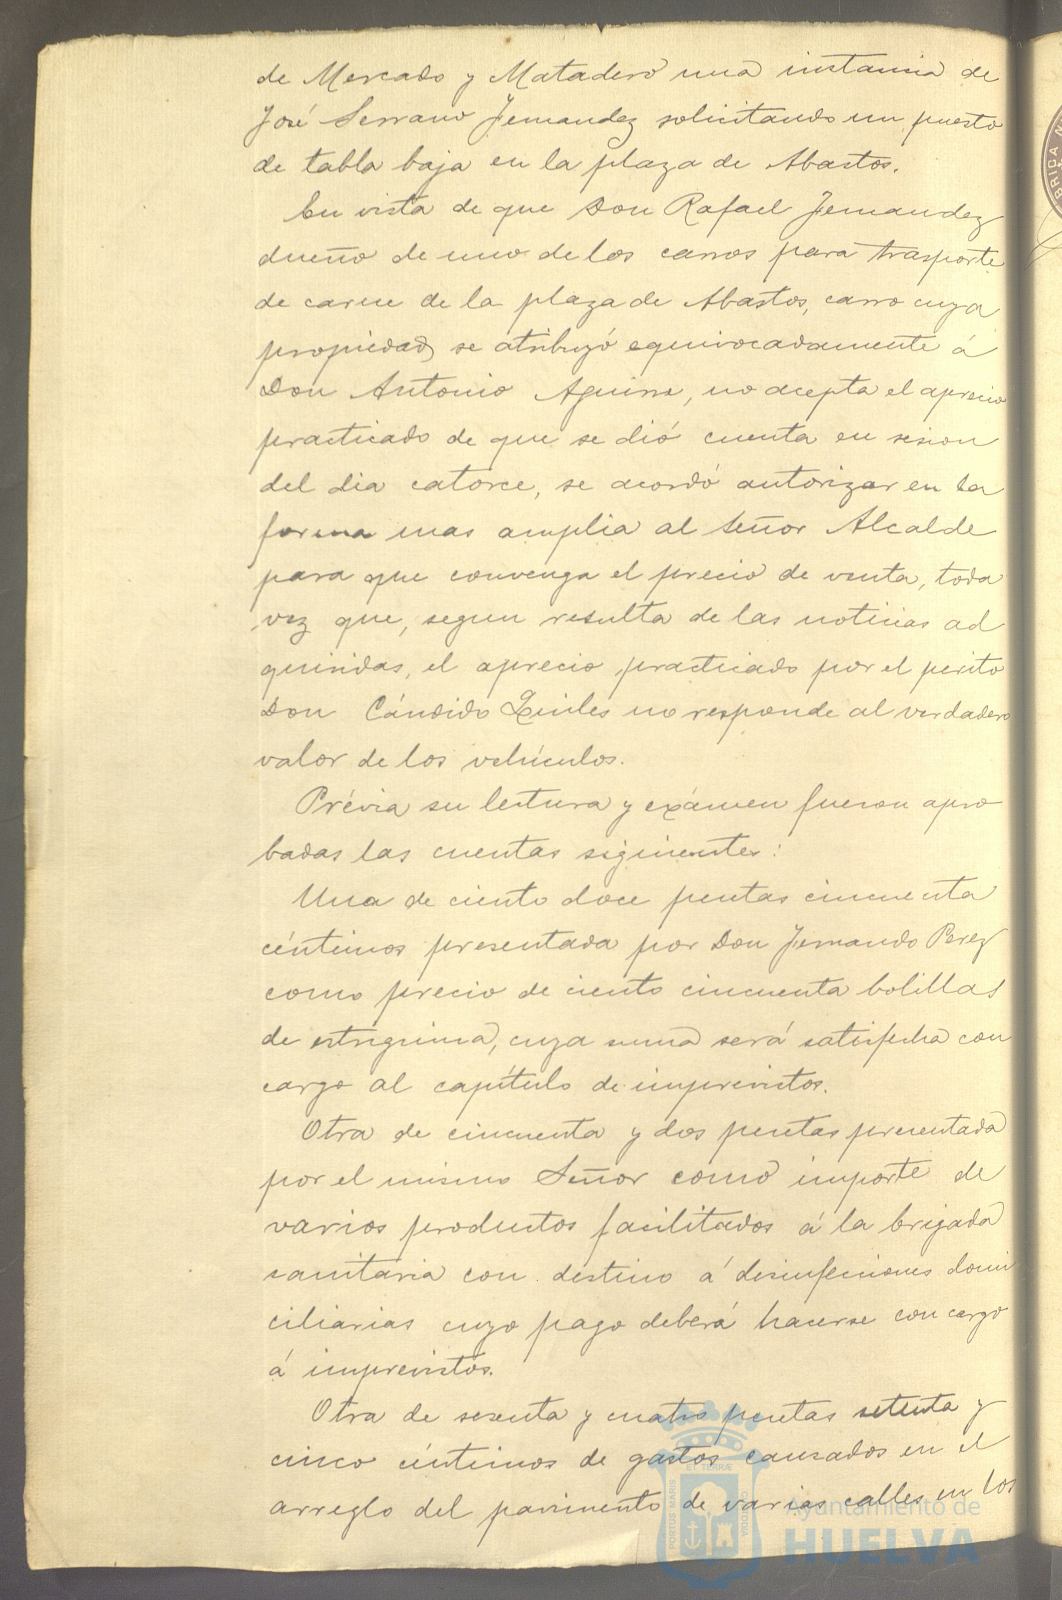 de Mercado y Matadero una instancia de
José Serrano Fernandez solicitando un puesto
de tabla baja en la plaza de Abastos.
En vista de que Don Rafael Fernandez
dueño de uno de los carros para trasporte
de carne de la plaza de Abastos, carro cuya
propiedad se atribuyó equivocadamente á
Don Antonio Aguirre, no acepta el aprecio
practicado de que se dió cuenta en sesion
del dia catorce, se acordó autorizar en la
forma mas amplia al Señor Alcalde
para que convenga el precio de venta, toda
vez que, segun resulta de las noticias ad
quiridas, el aprecio practicado por el perito
Don Cándido Quiles no responde al verdadero
valor de los vehículos.
Prévia su lectura y exámen fueron apro
badas las cuentas siguientes:
Una de ciento doce pesetas cincuenta
céntimos presentada por Don Fernando Perez
como precio de ciento cincuenta bolillas
de estrignina, cuya suma será satisfecha con
cargo al capítulo de imprevistos.
Otra de cincuenta y dos pesetas presentada
por el mismo Señor como importe de
varios productos facilitados á la brigada
sanitaria con destino á desinfecciones domi
ciliarias cuyo pago deberá hacerse con cargo
á imprevistos.
Otra de sesenta y cuatro pesetas setenta y
cinco céntimos de gastos causados en el
arreglo del pavimento de varias calles en los
PORTUS MARIS
ET TERRÆ
CUSTODIA
Ayuntamiento de
HUELVA